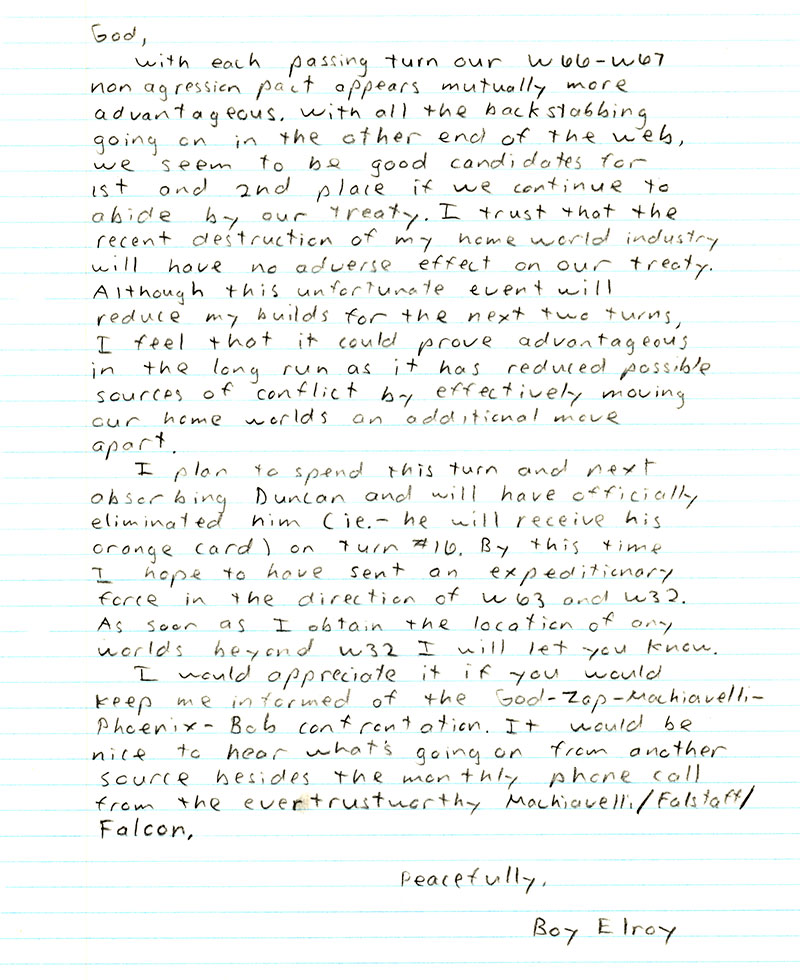 God,
with each passing turn our W66-W67
non agression pact appears mutually more
advantageous. With all the backstabbing
going on in the other end of the web,
we seem to be good candidates for
1st and 2nd place if we continue to
abide by our treaty. I trust that the
recent destruction of my home world industry
will have no adverse effect on our treaty.
Although this unfortunate event will
reduce my builds for the next two turns,
I feel that it could prove advantageous
in the long run as it has reduced possible
sources of conflict by effectively moving
our home worlds an additional move
apart.
I plan to spend this turn and next
obsorbing Duncan and will have officially
eliminated him (ie.- he will receive his
orange card) on turn #16. By this time
I hope to have sent an expeditionary
force in the direction of W63 and W32.
As soon as I obtain the location of any
worlds beyond W32 I will let you know.
I would appreciate it if you would
keep me informed of the God-Zap-Machiavelli-
Phoenix-Bob confrontation. It would be
nice to hear what's going on from another
source besides the monthly phone call
from the evertrustworthy Machiavelli/Falstaff/
Falcon.
Peacefully,
Boy Elroy